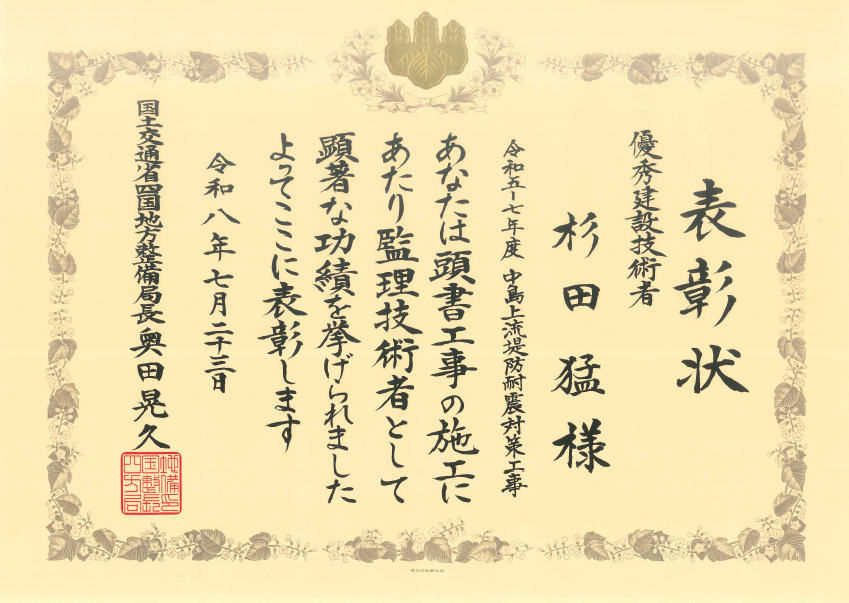 表彰状
優秀建設技術者
杉田猛様
令和五ー七年度 中島上流堤防耐震対策工事
あなたは頭書工事の施工に
あたり監理技術者として
顕著な功績を挙げられました
よってここに表彰します
令和八年七月二十三日
国土交通省四国地方整備局長 奥田晃久